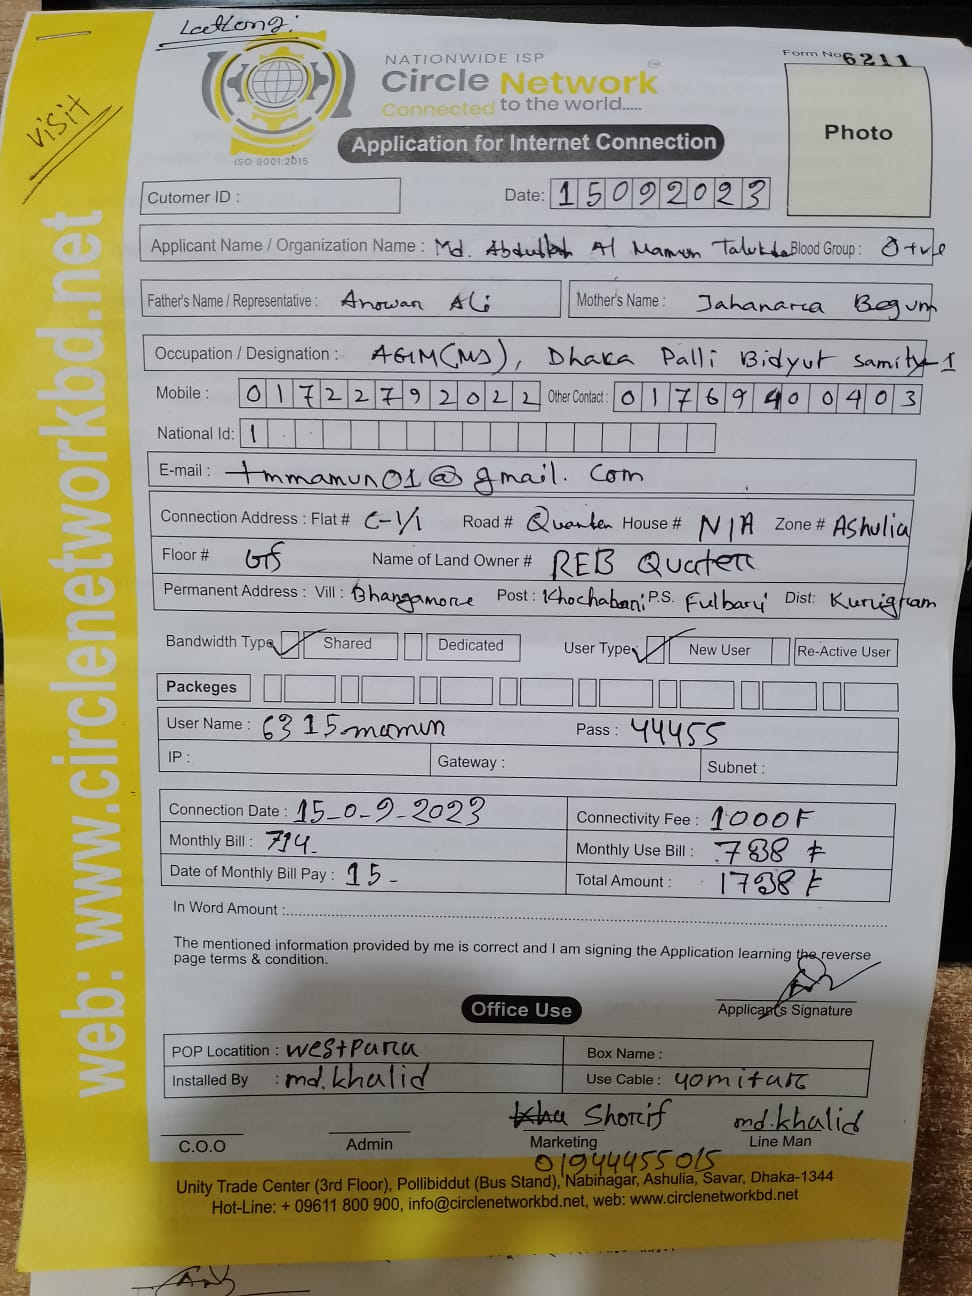 VISIT
NATIONWIDE ISP
Circle Network
Connected to the world.....
ISO 9001:2015
Form No 6211
Photo
Application for Internet Connection
Cutomer ID :
Date: 15092023
Applicant Name / Organization Name : Md. Abdullah Al Mamun Talukda Blood Group : O+ve
Father's Name / Representative : Anowar Ali Mother's Name : Jahanara Begum
Occupation / Designation : AGM(MS), Dhaka Palli Bidyut Samity-1
Mobile : 01722792022 Other Contact : 01769400403
National Id: 1
E-mail : tmmamun01@gmail.com
Connection Address : Flat # C-1/1 Road # Quarter House # N/A Zone # Ashulia
Floor # G/F Name of Land Owner # REB Quarter
Permanent Address : Vill : Bhangamore Post : Khochabari P.S. Fulbari Dist: Kurigram
Bandwidth Type Shared Dedicated User Type New User Re-Active User
Packeges
User Name : 6315mamun Pass : 44455
IP : Gateway : Subnet :
Connection Date : 15-0-9-2023 Connectivity Fee : 1000
Monthly Bill : 714 Monthly Use Bill : 738
Date of Monthly Bill Pay : 15- Total Amount : 1738
In Word Amount :
The mentioned information provided by me is correct and I am signing the Application learning the reverse
page terms & condition.
Applicant's Signature
Office Use
POP Locatition : westpara Box Name :
Installed By : md.khalid Use Cable : 40mitare
Shorif md.khalid
C.O.O Admin Marketing Line Man
01944455015
Unity Trade Center (3rd Floor), Pollibiddut (Bus Stand), Nabinagar, Ashulia, Savar, Dhaka-1344
Hot-Line: + 09611 800 900, info@circlenetworkbd.net, web: www.circlenetworkbd.net
web: www.circlenetworkbd.net